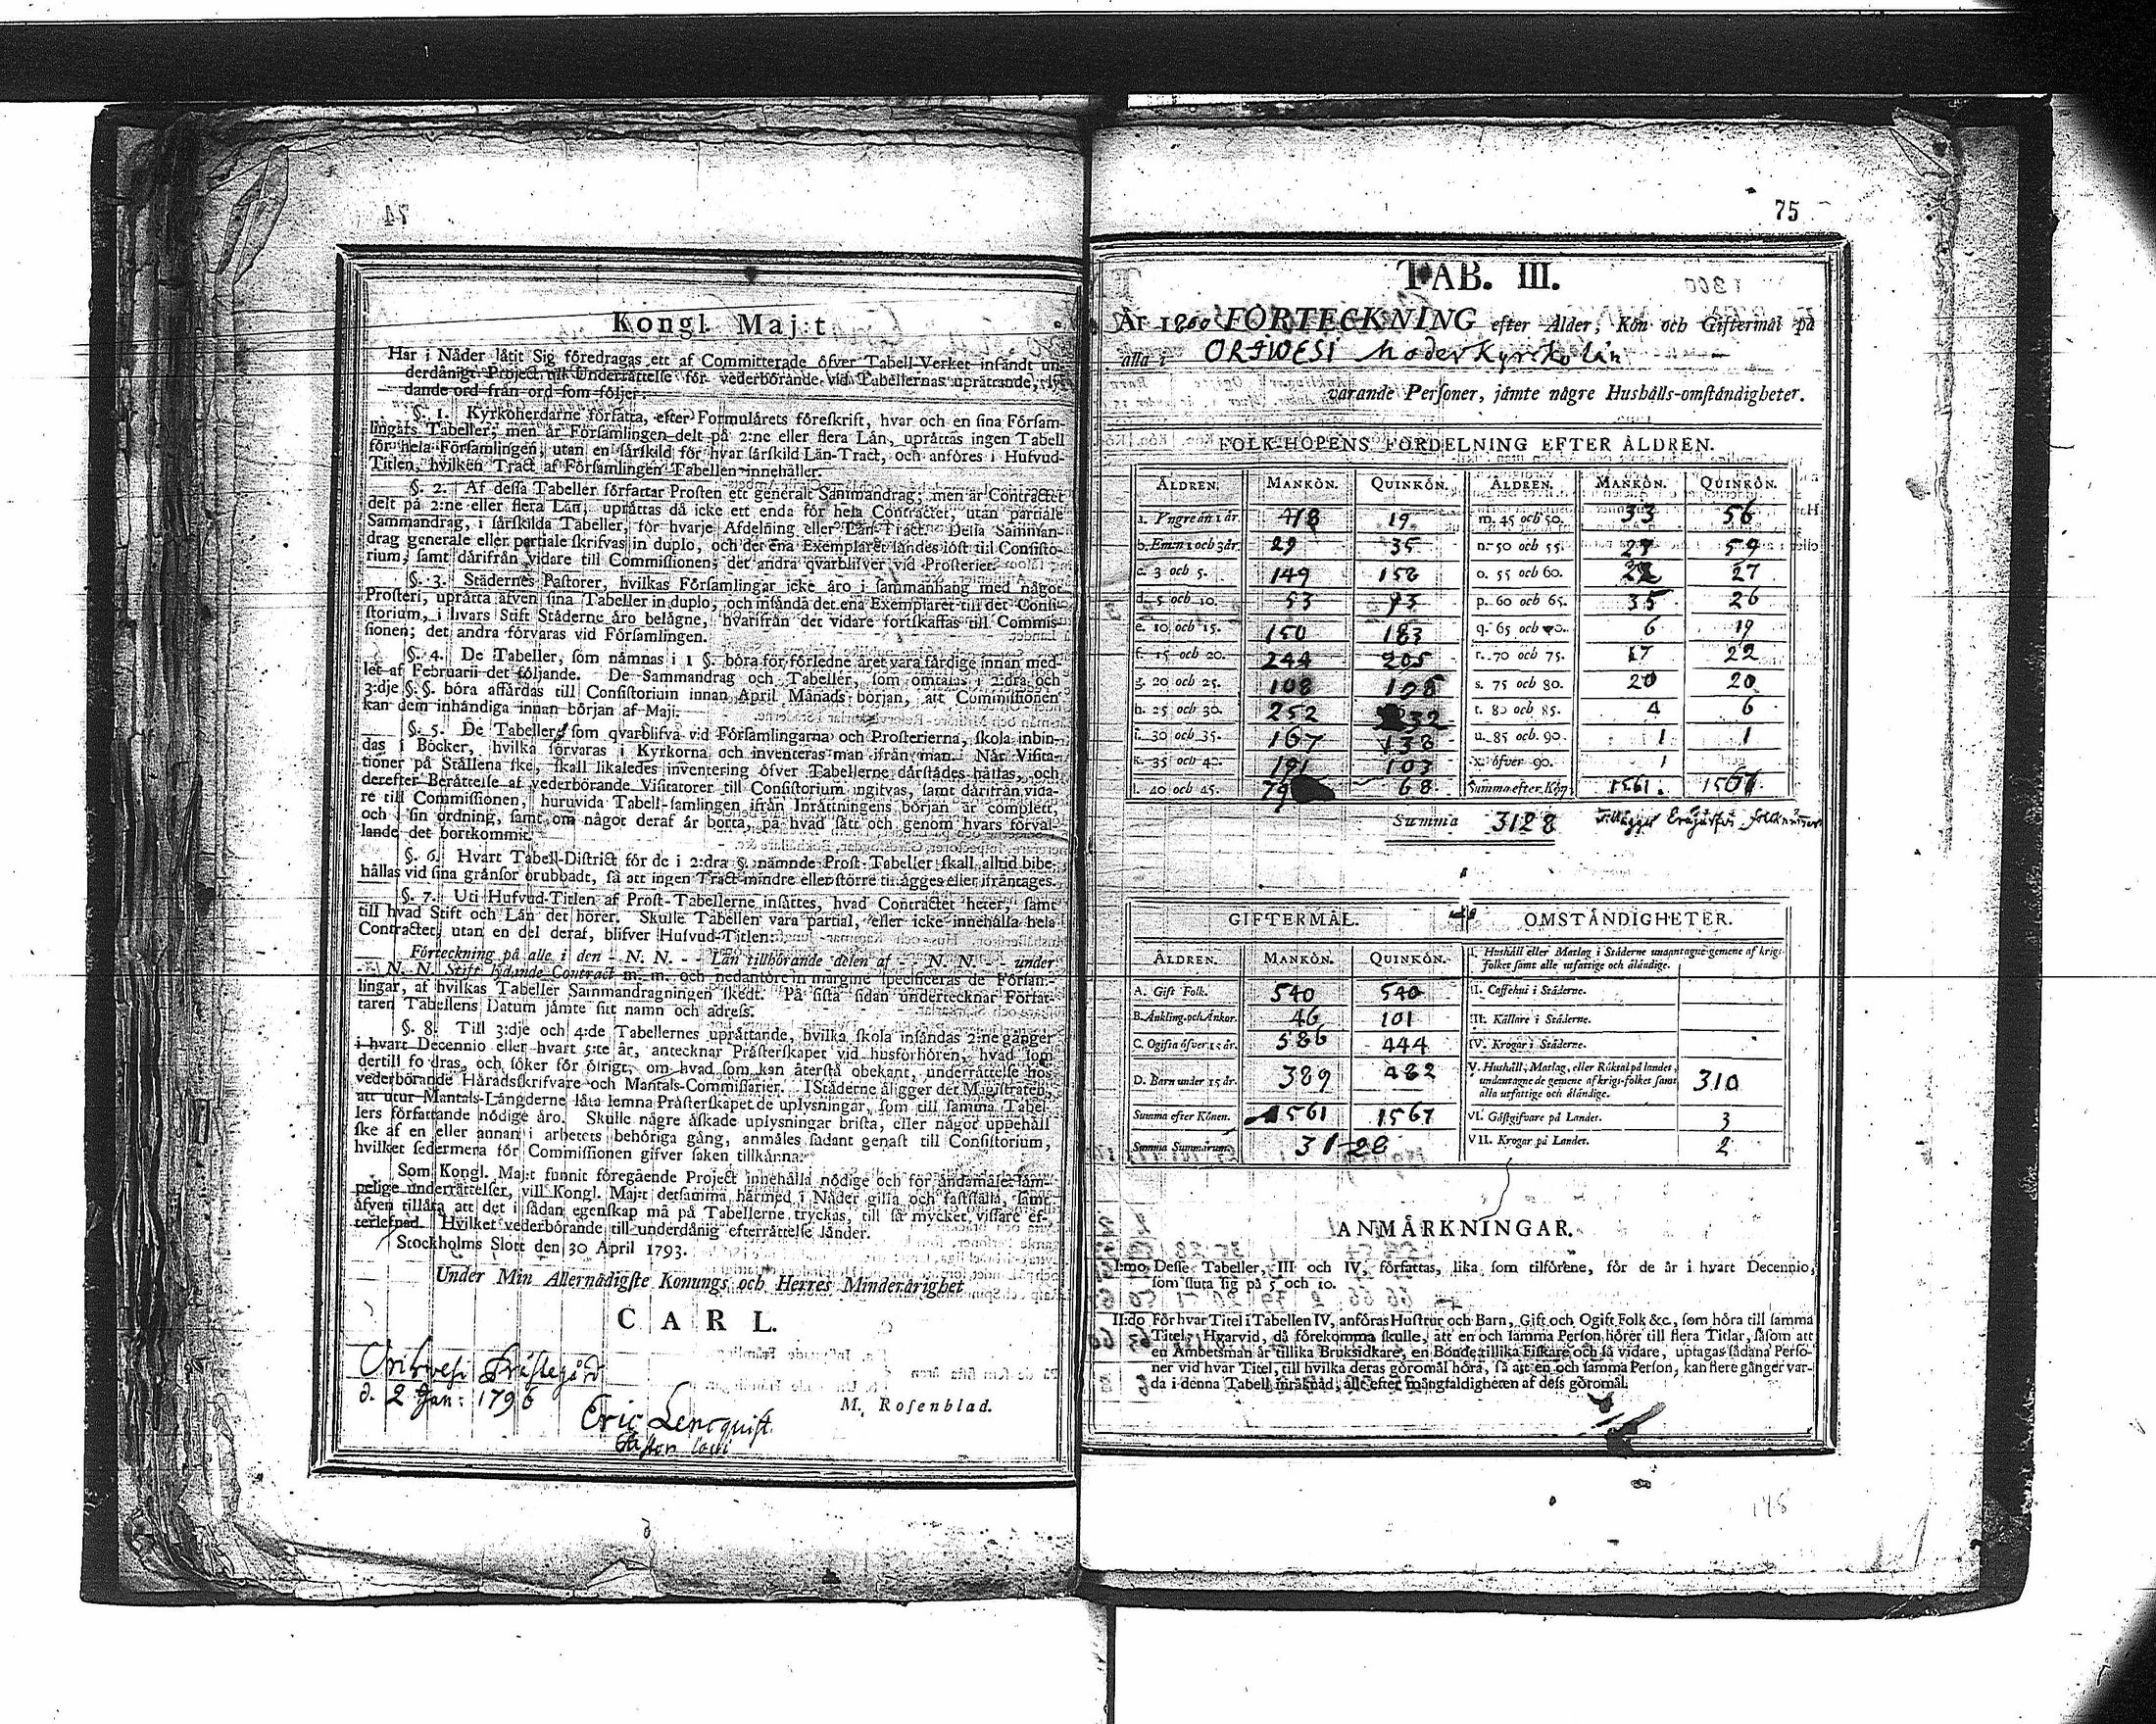 74
Kongl. Maj:t
Har i Nåder låtit Sig föredragas ett af Committerade öfver Tabell-Verket insåndt un-
derdånigt Project till Underråttelse för vederbörande vid Tabellernas upråttande, ly-
dande ord från ord som följer:
§. 1. Kyrkoherdarne författa, efter Formulårets föreskrift, hvar och en sina Församlin-
gars Tabeller; men år Församlingen delt på 2:ne eller flera Lån, upråttas ingen Tabell
för hela Församlingen, utan en sårskild för hvar sårskild Lån-Tract, och anföres i Hufvud-
Titlen, hvilken Tract af Församlingen Tabellen innehåller.
§. 2. Af dessa Tabeller författar Prosten ett generalt Sammandrag; men år Contractet
delt på 2:ne eller flera Lån, upråttas då icke ett enda för hela Contractet, utan partiale
Sammandrag, i sårskilda Tabeller, för hvarje Afdelning eller Lån-Tract. Dessa Samman-
drag generale eller partiale skrifvas in duplo, och det ena Exemplaret såndes löst till Consisto-
rium, samt dårifrån vidare till Commissionen; det andra qvarblifver vid Prosteriet.
§. 3. Städernes Pastorer, hvilkas Församlingar icke åro i sammanhang med något
Prosteri, upråtta åfven sina Tabeller in duplo, och insånda det ena Exemplaret till det Consi-
storium, i hvars Stift Ståderne åro belågne, hvarifrån det vidare fortskaffas till Commis-
sionen; det andra förvaras vid Församlingen.
§. 4. De Tabeller, som nåmnas i 1 §. böra för förledne året vara fårdige innan med-
let af Februarii det följande. De Sammandrag och Tabeller, som omtalas i 2:dra och
3:dje §. §. böra affårdas till Consistorium innan April Månads början, att Commissionen
kan dem inhåndiga innan början af Maji.
§. 5. De Tabeller, som qvarblifva vid Församlingarna och Prosterierna, skola inbin-
das i Böcker, hvilka förvaras i Kyrkorna och inventeras man ifrån man. Når Visita-
tioner på Stållena ske, skall likaledes inventering öfver Tabellerne dårstådes hållas, och
derefter Beråttelse af vederbörande Visitatorer till Consistorium ingifvas, samt dårifrån vida-
re till Commissionen, huruvida Tabell-samlingen ifrån Inråttningens början år complett
och i sin ordning, samt om något deraf år borta, på hvad sått och genom hvars förvål-
lande det bortkommit.
§. 6. Hvart Tabell-District för de i 2:dra §. nåmnde Prost-Tabeller skall alltid bibe-
hållas vid sina grånsor orubbadt, så att ingen Tract mindre eller större tillågges eller ifråntages.
§. 7. Uti Hufvud-Titlen af Prost-Tabellerne insåttes, hvad Contractet heter, samt
till hvad Stift och Lån det hörer. Skulle Tabellen vara partial, eller icke innehålla hela
Contractet, utan en del deraf, blifver Hufvud-Titlen:
Förteckning på alle i den - N. N. - - Lån tillhörande delen af - - N. N. - - under
- - N. N. Stift lydande Contract m. m. och nedanföre in margine specificeras de Försam-
lingar, af hvilkas Tabeller Sammandragningen skedt. På sista sidan undertecknar Förfat-
taren Tabellens Datum jåmte sitt namn och adress.
§. 8. Till 3:dje och 4:de Tabellernes upråttande, hvilka skola insåndas 2:ne gånger
i hvart Decennio eller hvart 5:te år, antecknar Pråsterskapet vid husförhören, hvad som
dertill fordras, och söker för öfrigt, om hvad som kan återstå obekant, underråttelse hos
vederbörande Håradsskrifvare och Mantals-Commissarier. I Ståderne åligger det Magistraten,
att utur Mantals-Långderne låta lemna Pråsterskapet de uplysningar, som till samma Tabel-
lers författande nödige åro. Skulle någre åskade uplysningar brista, eller något uppehåll
ske af en eller annan i arbetets behöriga gång, anmåles sådant genast till Consistorium,
hvilket sedermera för Commissionen gifver saken tillkånna.
Som Kongl. Maj:t funnit föregående Project innehålla nödige och för åndamålet låm-
pelige underråttelser, vill Kongl. Maj:t detsamma hårmed i Nåder gilla och faststålla, samt
åfven tillåta att det i sådan egenskap må på Tabellerne tryckas, till så mycket vissare ef-
terlefnad. Hvilket vederbörande till underdånig efterråttelse lånder.
Stockholms Slott den 30 April 1793.
Under Min Allernådigste Konungs och Herres Minderårighet
CARL.
M. Rosenblad.
d. 2 Jan: 1796
Eric Lencquist
75
TAB. III.
År 1800 FÖRTECKNING efter Ålder, Kön och Giftermål på
alla i ORIWESI Moder Kyrcko Län
varande Personer, jåmte någre Hushålls-omståndigheter.
FOLKHOPENS FÖRDELNING EFTER ÅLDREN.
ÅLDREN. MANKÖN. QUINKÖN. ÅLDREN. MANKÖN. QUINKÖN.
a. Yngre ån 1 år 19 m. 45 och 50. 33 56
b. Em:n 1 och 3 år. 29 35 n. 50 och 55. 59
c. 3 och 5. 149 158 o. 55 och 60. 27
d. 5 och 10. 53 p. 60 och 65. 35 26
e. 10 och 15. 150 183 q. 65 och 70. 6 19
f. 15 och 20. 244 205 r. 70 och 75. 17 22
g. 20 och 25. 108 s. 75 och 80. 20 20
h. 25 och 30. 252 t. 80 och 85. 4 6
i. 30 och 35. 167 138 u. 85 och 90. 1 1
k. 35 och 40. 191 103 x. öfver 90. 1
l. 40 och 45. 68 Summa efter Kön: 1561. 1567
Summa 3128
GIFTERMÅL. OMSTÅNDIGHETER.
ÅLDREN. MANKÖN. QUINKÖN. I. Hushåll eller Matlag i Ståderne unantagne gemene af krigs-
folket samt alle utfattige och ålåndige.
A. Gift Folk. 540 540 II. Caffehus i Ståderne.
B. Ånkling. och Ånkor. 46 101 III. Källare i Ståderne.
C. Ogifta öfver 15 år. 586 444 IV. Krogar i Ståderne.
D. Barn under 15 år. 389 482 V. Hushåll, Matlag, eller Röktal på landet,
undantagne de gemene af krigs-folket samt
alla utfattige och ålåndige. 310
Summa efter Könen. 1561 1567 VI. Gåstgifvare på Landet. 3
Summa Summårum. 3128 VII. Krogar på Landet. 2
ANMÅRKNINGAR.
I:mo Desse Tabeller, III och IV, författas, lika som tilförene, för de år i hvart Decennio,
som sluta sig på 5 och 10.
II:do För hvar Titel i Tabellen IV, anföras Hustrur och Barn, Gift och Ogift Folk &c., som höra till samma
Titel; Hvarvid, då förekomma skulle, att en och samma Person hörer till flera Titlar, såsom att
en Åmbetsman år tillika Bruksidkare, en Bonde tillika Fiskare och så vidare, uptagas sådana Perso-
ner vid hvar Titel, till hvilka deras göromål höra, så att en och samma Person, kan flere gånger var-
da i denna Tabell inråknad, allt efter mångfaldigheten af dess göromål.